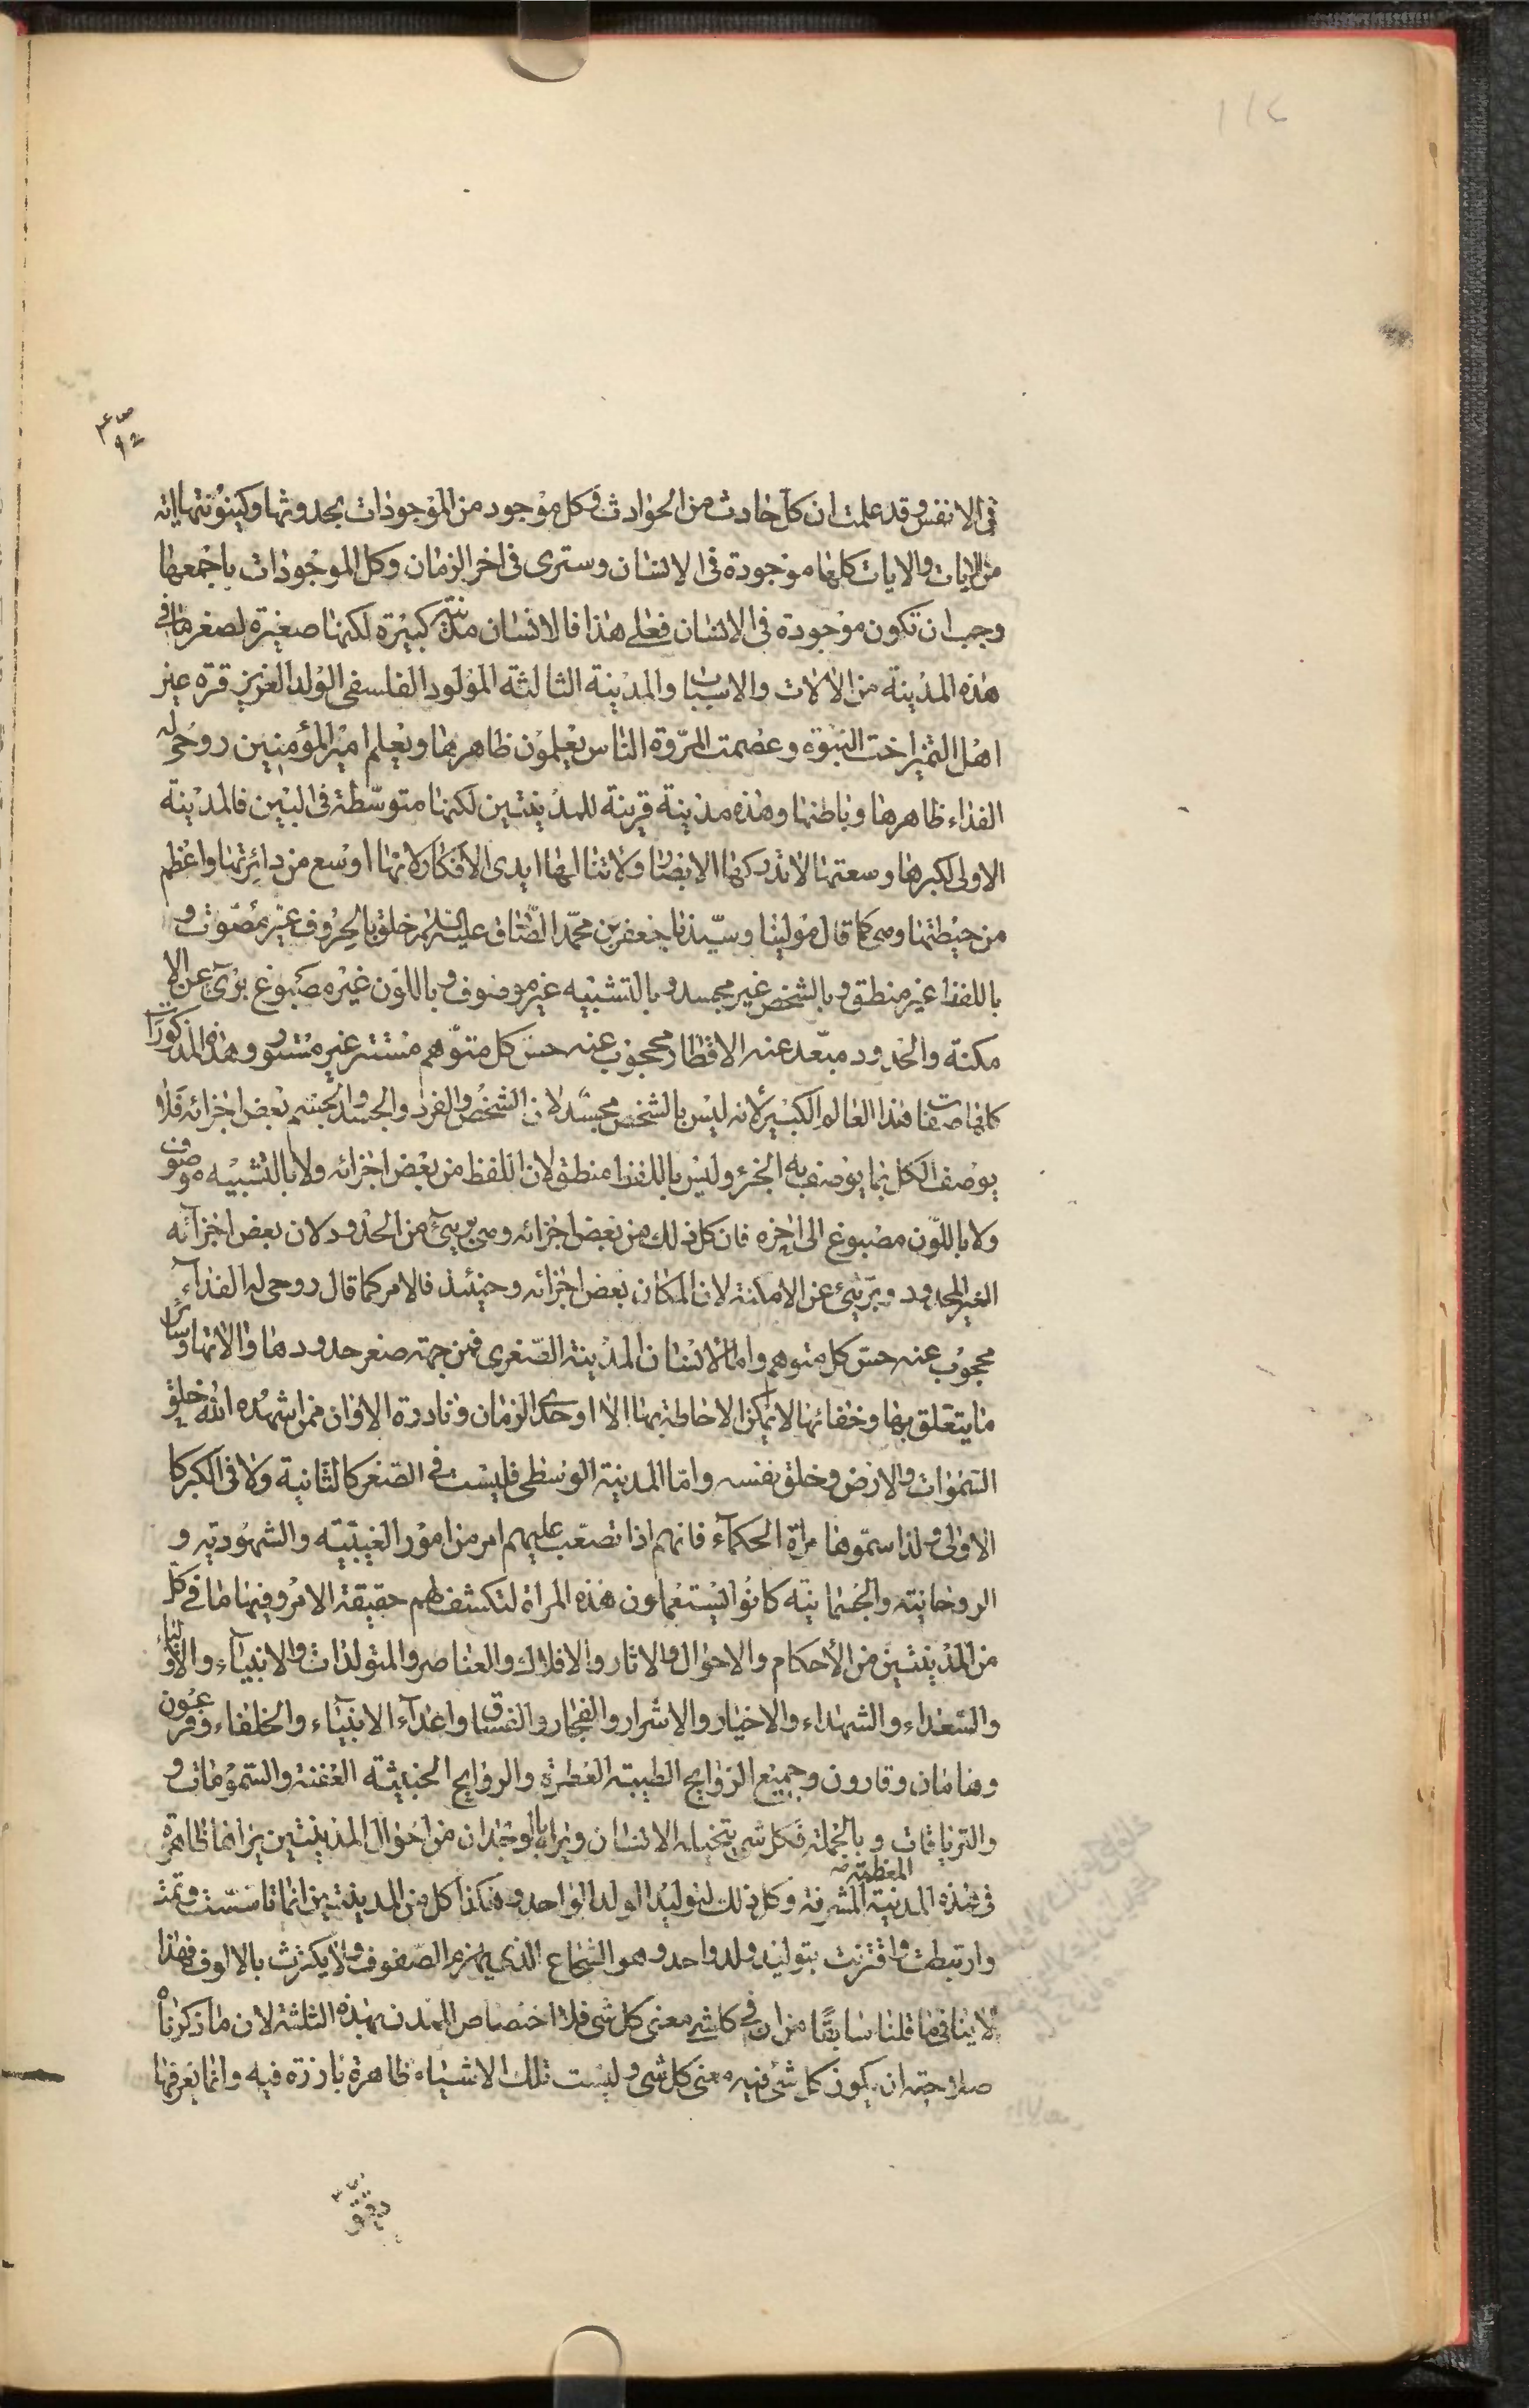 ١١٤
٩٢
فى الانفس وقد علمت ان كل حادث من الحوادث وكل موجود من الموجودات بحدوثها وكينونتها اية
من الايات والايات كلها موجودة فى الانسان وسترى فى اخر الزمان وكل الموجودات باجمعها
وجب ان تكون موجودة فى الانسان فعلى هذا فالانسان مدينة كبيرة لكنها صغيرة لصغر ما فى
هذه المدينة من الالات والاسباب والمدينة الثالثة المولود الفلسفى الولد العزيز قرة عين
اهل التميز اخت النبوة وعصمت المروة الناس يعلمون ظاهرها ويعلم امير المؤمنين روحى له
الفداء ظاهرها وباطنها وهذه مدينة قرينة للمدينتين لكنها متوسطة فى البين فالمدينة
الاولى لكبرها وسعتها لا تدركها الابصار ولا تنالها ايدى الافكار لانها اوسع من دائرتها واعظم
من حيطتها وهى كما قال مولينا وسيدنا جعفر بن محمد الصادق عليه السلام خلق بالحروف غير مصوت و
باللفظ غير منطق و بالشخص غير مجسد و بالتشبيه غير موصوف و باللون غير مصبوغ برئ عن الا
مكنة والحدود مبعد عنه الاقطار محجوب عنه حس كل متوهم مستتر غير مستور وهذه المذكورات
كلها صفات هذا العالم الكبير لانه ليس بالشخص مجسد لان الشخص والفرد والجسد والجسم بعض اجزائه فلا
يوصف الكل بما يوصف به الجزء وليس باللفظ منطق لان اللفظ من بعض اجزائه ولا بالتشبيه موصوف
ولا باللون مصبوغ الى اخره فان كل ذلك من بعض اجزائه وهى برئ من الحدود لان بعض اجزائه
الغير المحدود وبرئ عن الامكنة لان المكان بعض اجزائه وحينئذ فالامر كما قال روحى له الفداء
محجوب عنه حس كل متوهم واما الانسان المدينة الصغرى فمن جهة صغر حدودها والاتها وسائر
ما يتعلق بها وخفائها لا يمكن الاحاطة بها الا اوحدى الزمان ونادرة الاوان ممن اشهده الله خلق
السموات والارض وخلق نفسه واما المدينة الوسطى فليست فى الصغر كالثانية ولا فى الكبر كا
الاولى ولذا سموها مراة الحكماء فانهم اذا تصعب عليهم امر من امور الغيبية والشهودية و
الروحانية والجسمانية كانوا يستعملون هذه المراة لتكشف لهم حقيقة الامر وفيها ما فى كل
من المدينتين من الاحكام والاحوال والاثار والافلاك والعناصر والمتولدات والانبياء والاولياء
والسعداء والشهداء والاخيار والاشرار والفجار والفساق واعداء الانبياء والخلفاء وفرعون
وهامان وقارون وجميع الروايح الطيبة العطرة والروايح الخبيثة العفنة والسمومات و
والترياقات و بالجملة فكل شى يتخيله الانسان ويراه بالوجدان من احوال المدينتين يراها ظاهرة
المعظمة
فى هذه المدينة المشرفة وكل ذلك لتوليد الولد الواحد وهكذا كل من المدينتين انما تاسست وتمت
وارتبطت واقترنت بتوليد ولد واحد وهو الشجاع الذى يهزم الصفوف ولا يكترث بالالوف فهذا
لا ينافى ما قلنا سابقا من ان فى كل شى معنى كل شى فلا اختصاص للمدن بهذه الثلثة لان ما ذكرناه
صلاحية ان يكون كل شئ فيه معنى كل شى وليست تلك الاشياء ظاهرة بارزة فيه وانما يعرفها